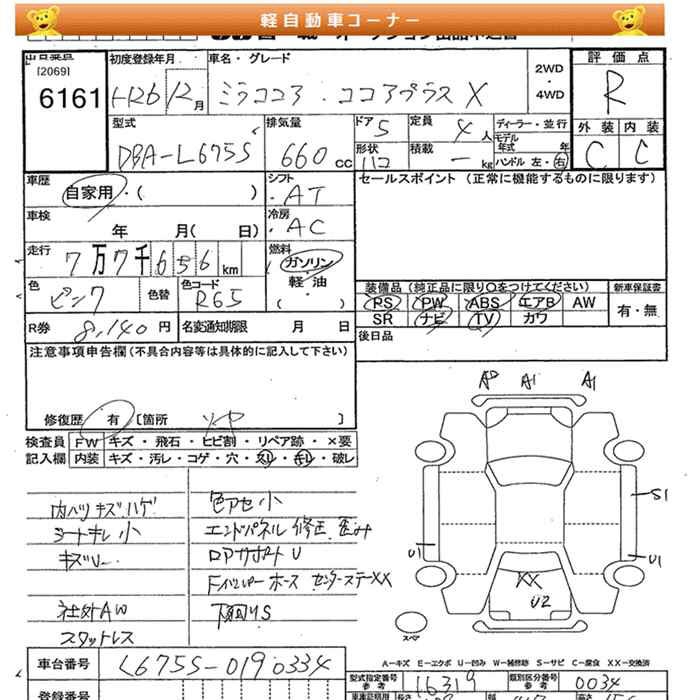 軽自動車コーナー
出品番号
[2069]
6161
初度登録年月
H26/12月
車名・グレード
ミラココア・ココアプラス X
2WD
・
4WD
評価点
R
型式
DBA-L675S
排気量
660cc
ドア
5
定員
4人
ディーラー・並行
モデル年式 年
ハンドル 左・右
形状
ハコ
積載
— kg
外装
C
内装
C
車歴
自家用・( )
シフト
・AT
セールスポイント (正常に機能するものに限ります)
車検
年 月( 日)
冷房
・AC
走行
7万7千656km
燃料
ガソリン
軽・油
( )
色
ピンク
色替
色コード
R65
R券
8,140円
名変通知期限 月 日
装備品 (純正品に限り○をつけてください)
PS PW ABS エアB AW
SR ナビ TV カワ
新車保証書
有・無
後日品
注意事項申告欄(不具合内容等は具体的に記入して下さい)
修復歴 有 [箇所 ]
検査員記入欄
FW キズ・飛石・ヒビ割・リペア跡・×要
内装 キズ・汚レ・コゲ・穴・スレ・キレ・破レ
内ハリキズハゲ
シートキレ小
キズU
社外AW
スタットレス
色アセ小
エンドパネル修正歪み
ロアサポートU
下廻りS
A1 A1
S1
U1
U1
XX
U2
スペア
A-キズ E-エクボ U-凹み W-補修跡 S-サビ C-腐食 XX-交換済
車台番号
L675S-0190334
型式指定番号
参考
16319
類別区分番号
参考
0034
登録番号